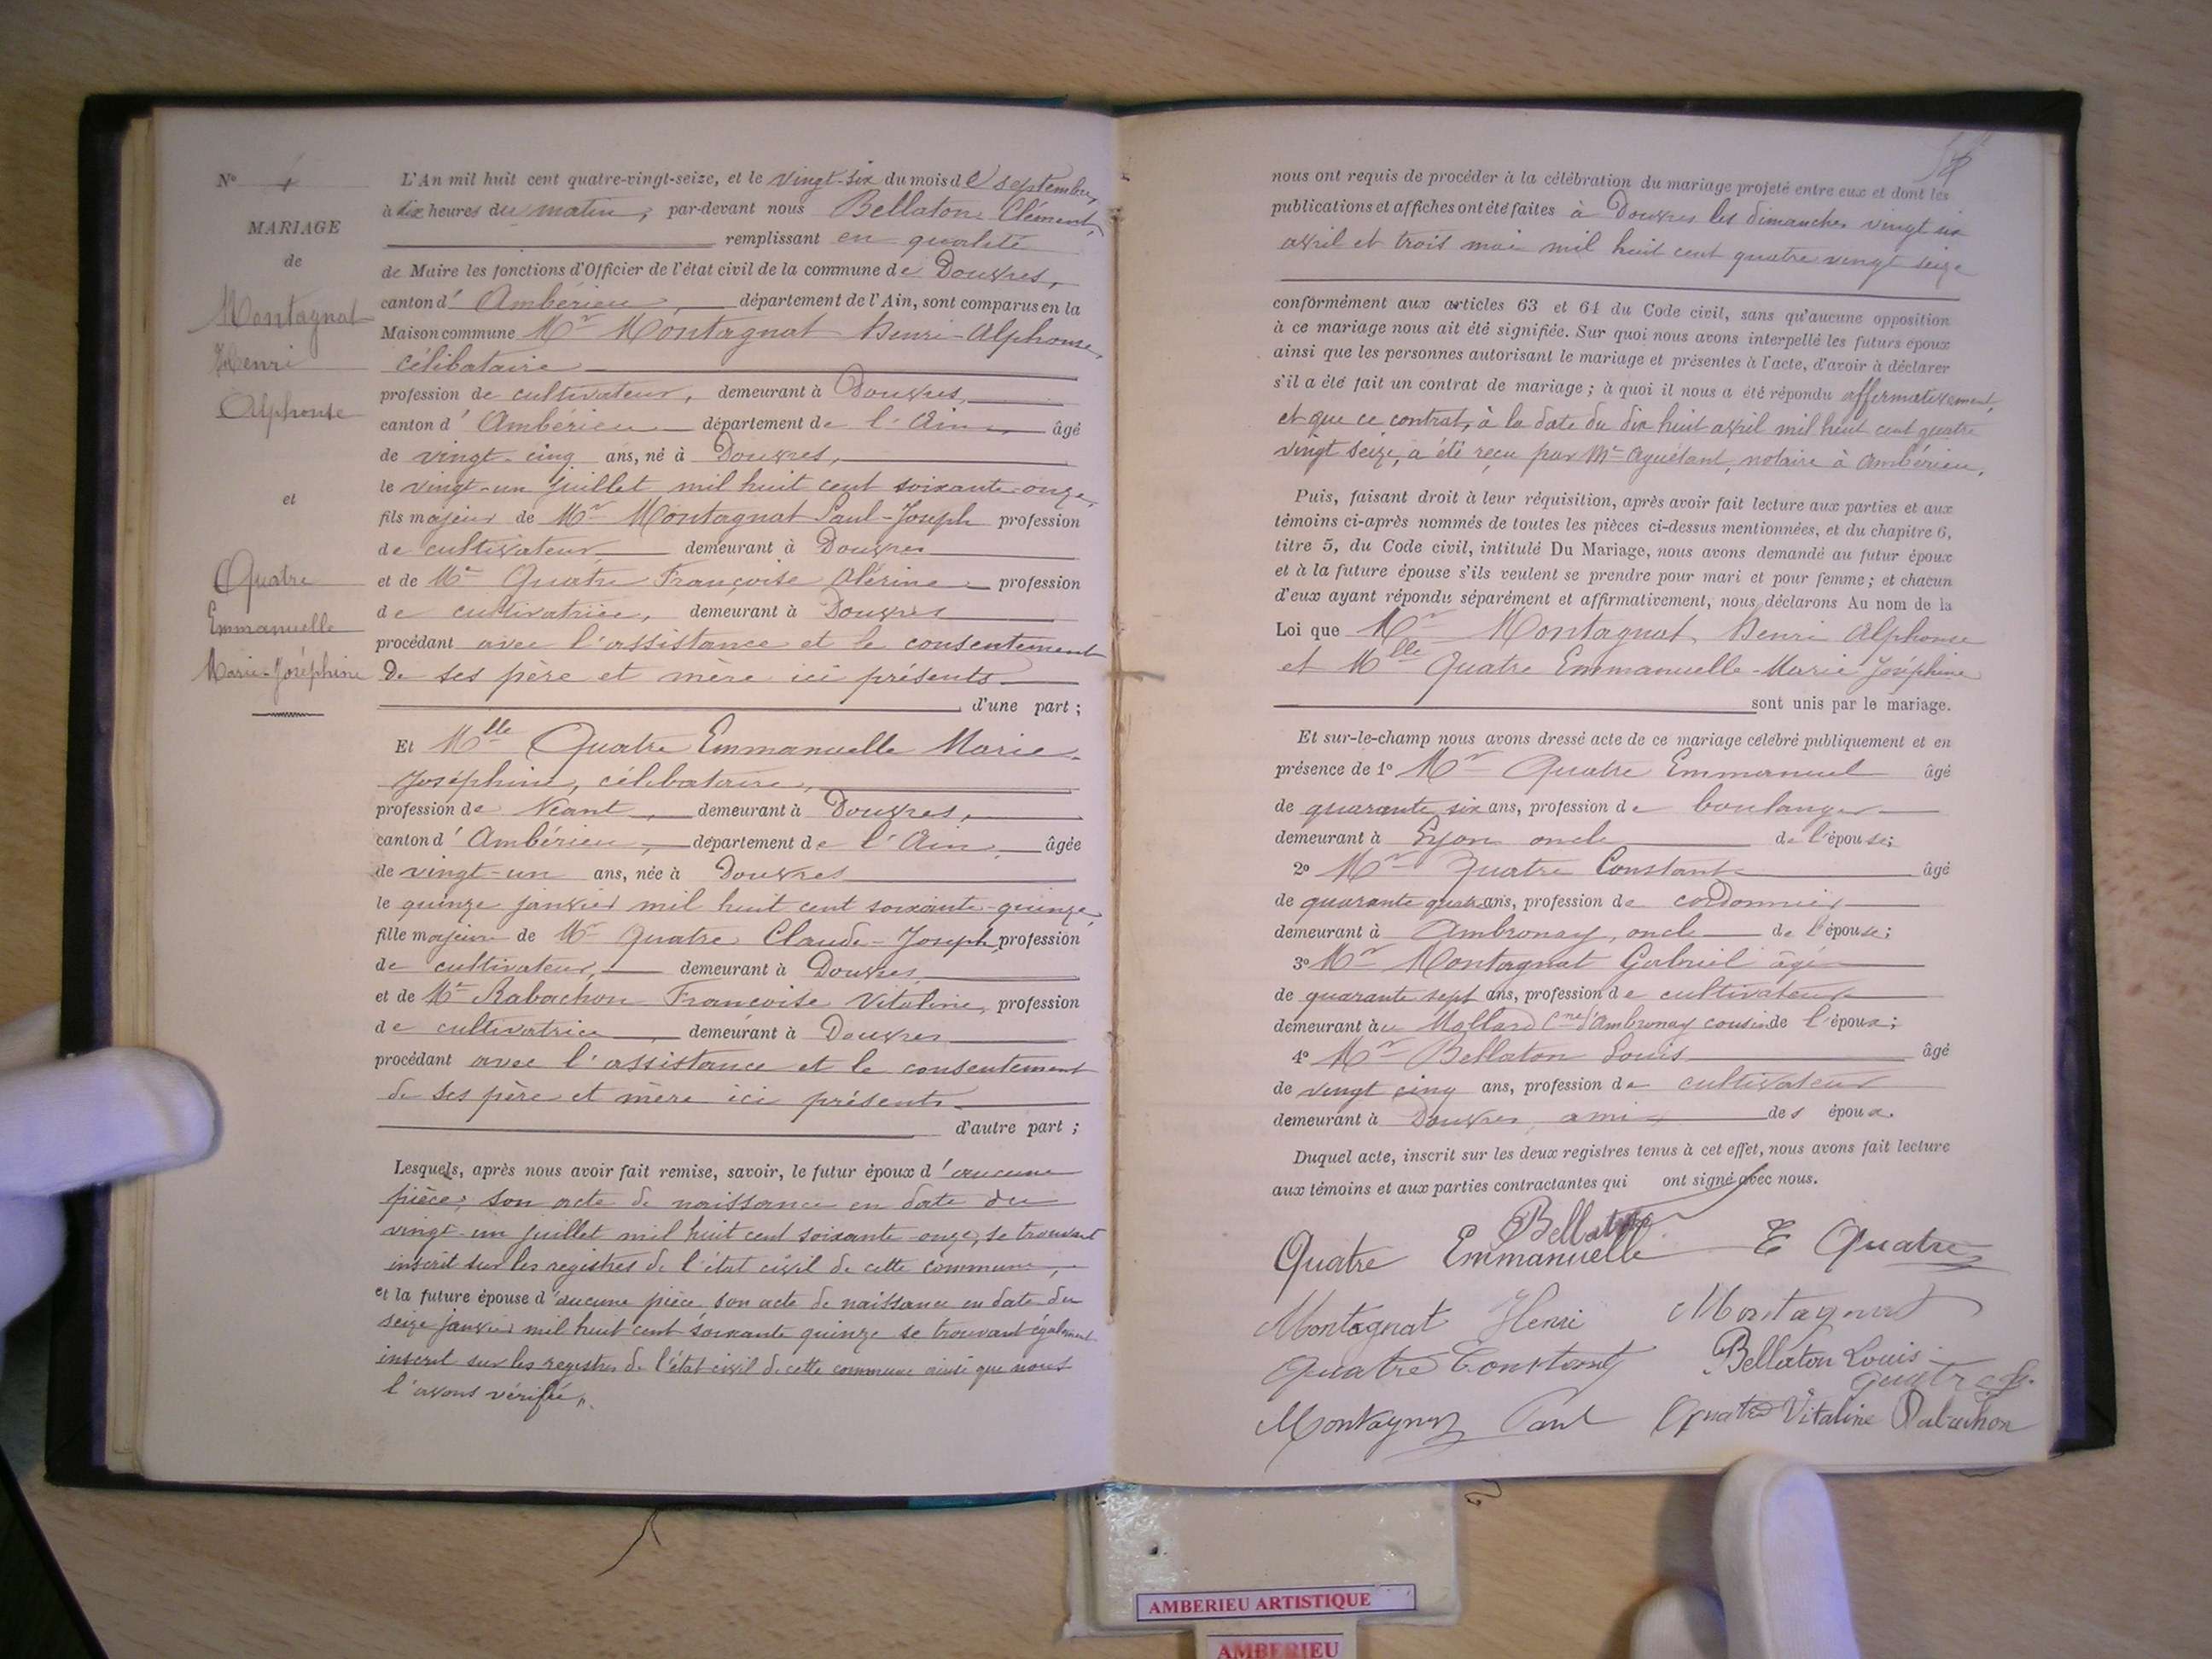 Nº 4
MARIAGE
de
Montagnat
Henri
Alphonse
et
Quatre
Emmanuelle
Marie-Joséphine
L'An mil huit cent quatre-vingt-seize, et le vingt-six du mois de septembre,
à dix heures du matin, par-devant nous Bellaton Clément,
remplissant en qualité
de Maire les fonctions d'Officier de l'état civil de la commune de Douvres,
canton d'Ambérieu, département de l'Ain, sont comparus en la
Maison commune Mr Montagnat Henri-Alphonse,
célibataire
profession de cultivateur, demeurant à Douvres,
canton d'Ambérieu département de l'Ain âgé
de vingt-cinq ans, né à Douvres,
le vingt-un juillet mil huit cent soixante-onze,
fils majeur de Mr Montagnat Paul-Joseph profession
de cultivateur demeurant à Douvres
et de Me Quatre Françoise Alérine profession
de cultivatrice, demeurant à Douvres
procédant avec l'assistance et le consentement
de ses père et mère ici présents
d'une part ;
Et Mlle Quatre Emmanuelle Marie-
Joséphine, célibataire,
profession de Néant, demeurant à Douvres,
canton d'Ambérieu, département de l'Ain, âgée
de vingt-un ans, née à Douvres
le quinze janvier mil huit cent soixante-quinze,
fille majeure de Mr Quatre Claude-Joseph, profession
de cultivateur, demeurant à Douvres
et de Me Rabachon Françoise Vitaline, profession
de cultivatrice, demeurant à Douvres
procédant avec l'assistance et le consentement
de ses père et mère ici présents
d'autre part ;
Lesquels, après nous avoir fait remise, savoir, le futur époux d'aucune
pièce, son acte de naissance en date du
vingt-un juillet mil huit cent soixante-onze, se trouvant
inscrit sur les registres de l'état civil de cette commune,
et la future épouse d'aucune pièce, son acte de naissance en date du
seize janvier mil huit cent soixante quinze se trouvant également
inscrit sur les registres de l'état civil de cette commune ainsi que nous
l'avons vérifié,
nous ont requis de procéder à la célébration du mariage projeté entre eux et dont les
publications et affiches ont été faites à Douvres les dimanches vingt six
avril et trois mai mil huit cent quatre vingt seize
conformément aux articles 63 et 64 du Code civil, sans qu'aucune opposition
à ce mariage nous ait été signifiée. Sur quoi nous avons interpellé les futurs époux
ainsi que les personnes autorisant le mariage et présentes à l'acte, d'avoir à déclarer
s'il a été fait un contrat de mariage ; à quoi il nous a été répondu affirmativement,
et que ce contrat, à la date du dix huit avril mil huit cent quatre
vingt seize, a été reçu par Me Aguétant, notaire à Ambérieu.
Puis, faisant droit à leur réquisition, après avoir fait lecture aux parties et aux
témoins ci-après nommés de toutes les pièces ci-dessus mentionnées, et du chapitre 6,
titre 5, du Code civil, intitulé Du Mariage, nous avons demandé au futur époux
et à la future épouse s'ils veulent se prendre pour mari et pour femme ; et chacun
d'eux ayant répondu séparément et affirmativement, nous déclarons Au nom de la
Loi que Mr Montagnat Henri Alphonse
et Mlle Quatre Emmanuelle-Marie Joséphine
sont unis par le mariage.
Et sur-le-champ nous avons dressé acte de ce mariage célébré publiquement et en
présence de 1º Mr Quatre Emmanuel âgé
de quarante six ans, profession de boulanger
demeurant à Lyon oncle de l'épouse;
2º Mr Quatre Constant âgé
de quarante quatre ans, profession de cordonnier
demeurant à Ambronay, oncle de l'épouse;
3º Mr Montagnat Gabriel âgé
de quarante sept ans, profession de cultivateur
demeurant au Mollard Cne d'Ambronay cousin de l'époux;
4º Mr Bellaton Louis âgé
de vingt cinq ans, profession de cultivateur
demeurant à Douvres, ami des époux.
Duquel acte, inscrit sur les deux registres tenus à cet effet, nous avons fait lecture
aux témoins et aux parties contractantes qui ont signé avec nous.
Bellaton
Quatre Emmanuelle E Quatre
Montagnat Henri Montagnat
Quatre Constant Bellaton Louis
Quatre
Montagnat Paul Quatre Vitaline Rabachon
AMBERIEU ARTISTIQUE
AMBERIEU